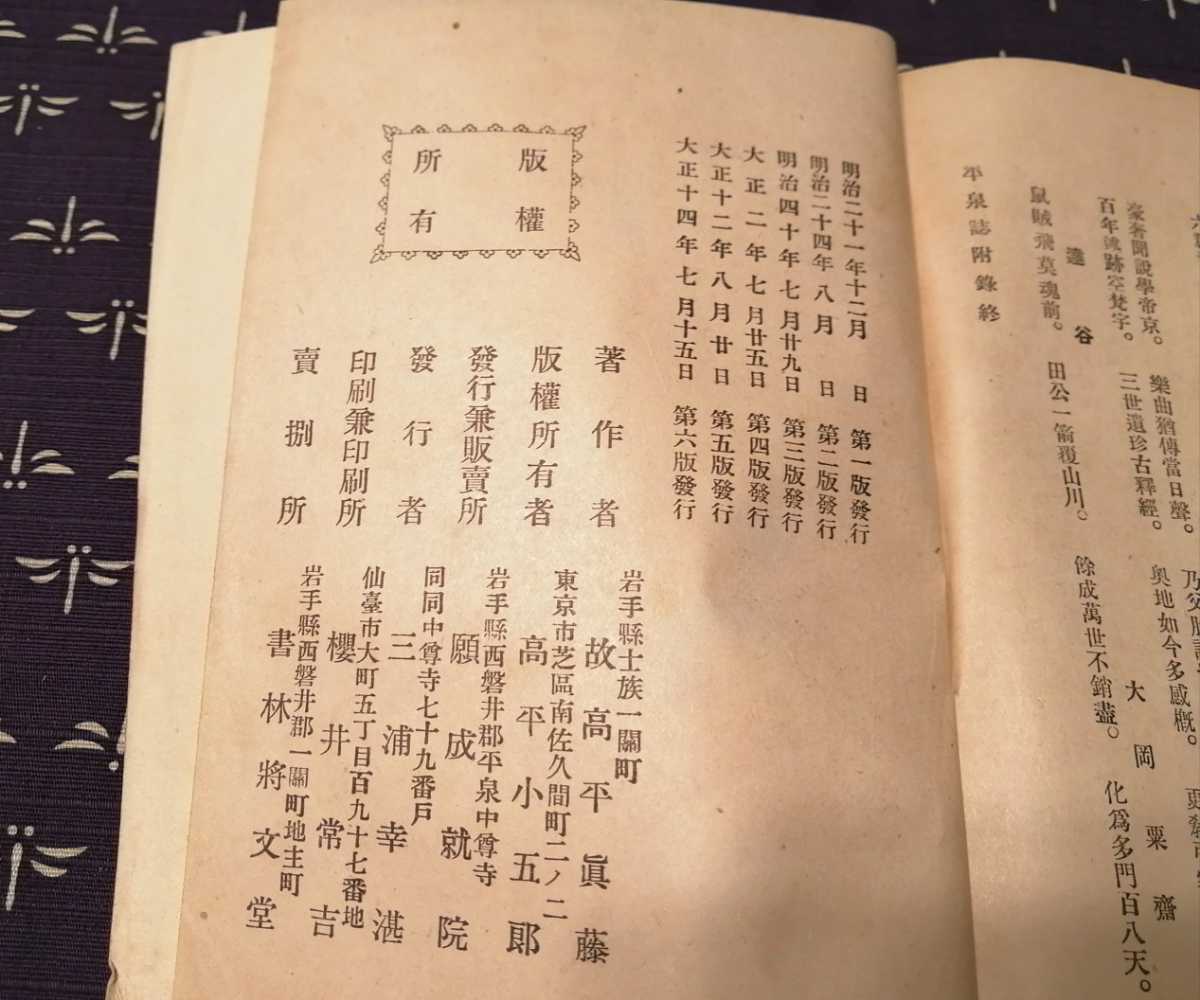 豪奢聞說學帝京。 樂曲猶傳當日聲。
百年遺跡空梵字。 三世遺珍古釋經。 奧地如今多感慨。
達谷 大岡粟齋
鼠賊飛莫魂前。 田公一箭覆山川。 餘威萬世不銷盡。 化爲多門百八天。
平泉誌附錄終
明治二十一年十二月 日 第一版發行
明治二十四年八月 日 第二版發行
明治四十年七月廿九日 第三版發行
大正二年七月廿五日 第四版發行
大正十二年八月廿日 第五版發行
大正十四年七月十五日 第六版發行
版權
所有
岩手縣士族一關町
著作者 故高平眞藤
東京市芝區南佐久間町二ノ二
版權所有者 高平小五郎
岩手縣西磐井郡平泉中尊寺
發行兼販賣所 願成就院
同同中尊寺七十九番戶
發行者 三浦幸湛
仙臺市大町五丁目百九十七番地
印刷兼印刷所 櫻井常吉
岩手縣西磐井郡一關町地主町
賣捌所 書林將文堂